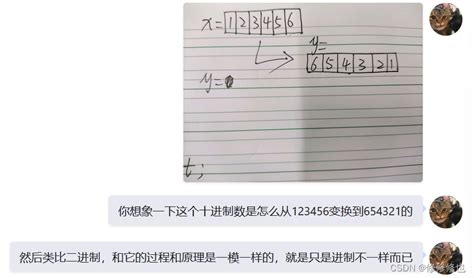 x= 1 2 3 4 5 6
y=
6 5 4 3 2 1
y=0
t;
你想象一下这个十进制数是怎么从123456变换到654321的
然后类比二进制，和它的过程和原理是一模一样的，就是只是进制不一样而已
CSDN @修修修也